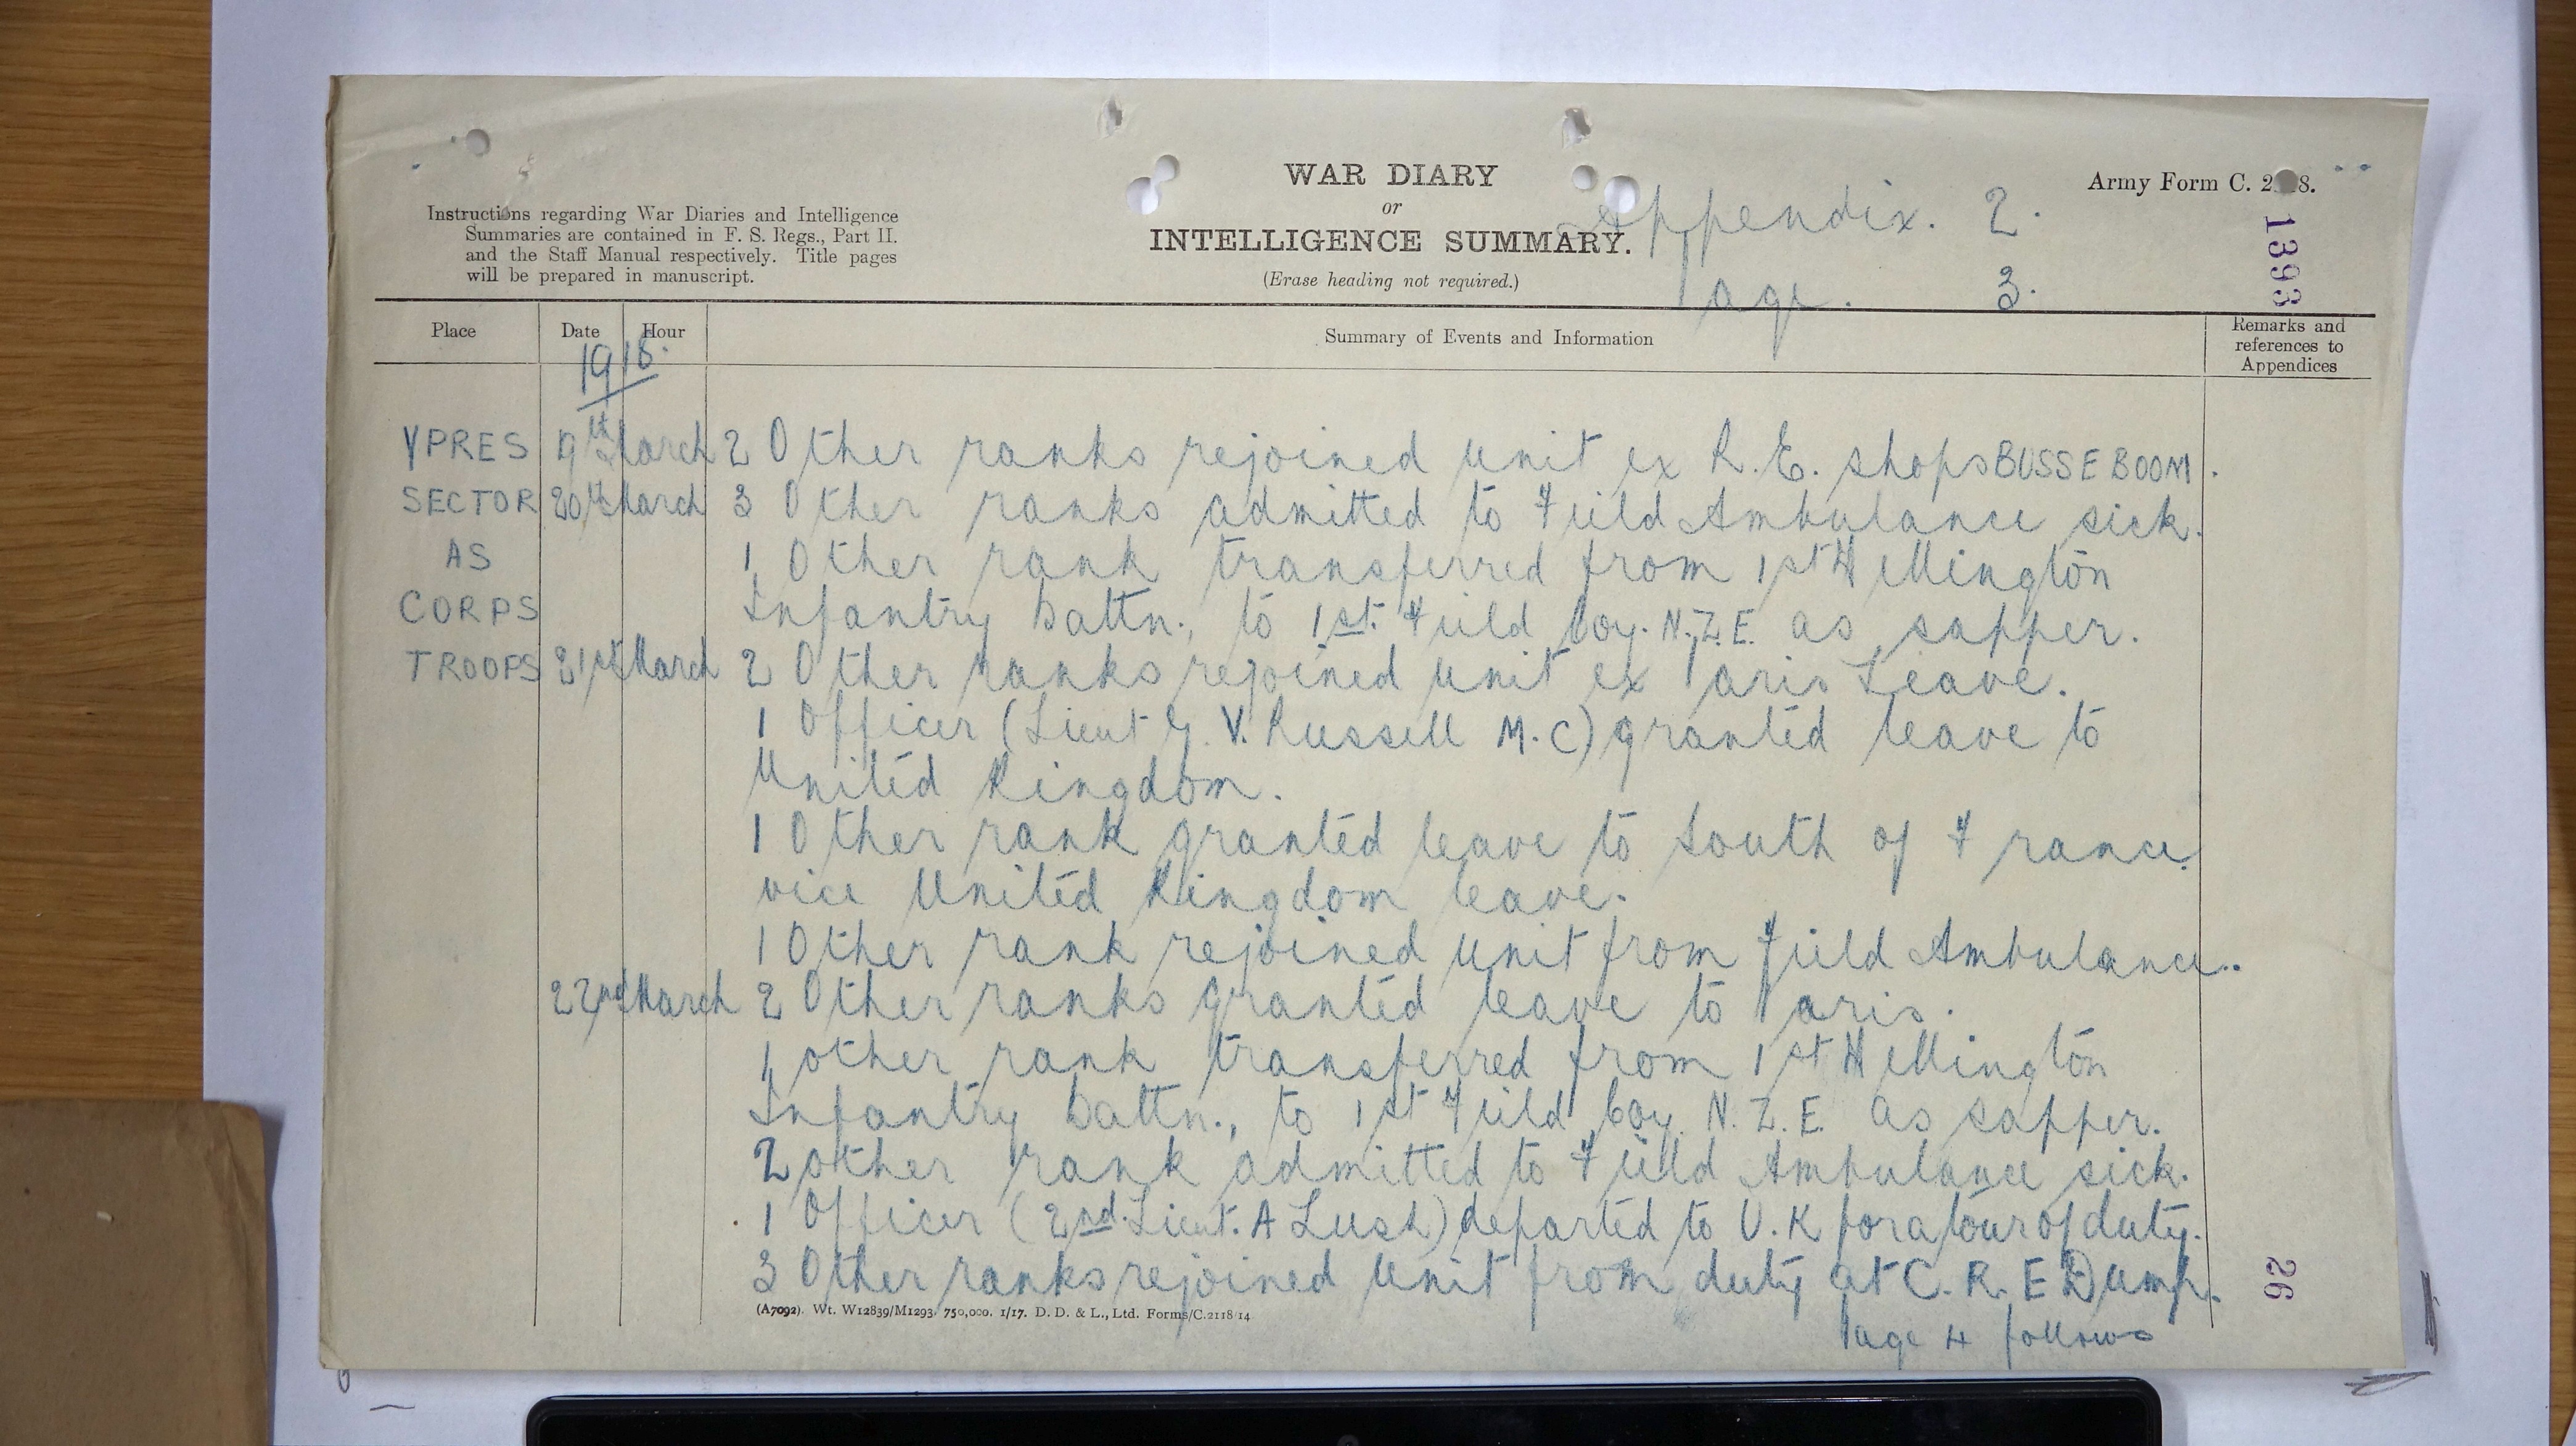 WAR DIARY
or
INTELLIGENCE SUMMARY.
(Erase heading not required.)
Instructions regarding War Diaries and Intelligence
Summaries are contained in F. S. Regs., Part II.
and the Staff Manual respectively. Title pages
will be prepared in manuscript.
Appendix. 2.
Page. 3.
Army Form C. 2118.
1393
Place Date Hour Summary of Events and Information Remarks and references to Appendices
1918.
YPRES 19th March 2 Other ranks rejoined unit ex R.E. shops BUSSEBOOM.
SECTOR 20th March 3 Other ranks admitted to Field Ambulance sick.
AS 1 Other rank transferred from 1st Wellington
CORPS Infantry Battn., to 1st. Field Coy. N.Z.E. as sapper.
TROOPS 21st March 2 Other ranks rejoined unit ex Paris Leave.
1 Officer (Lieut G. V. Russell M.C) granted leave to
United Kingdom.
1 Other rank granted leave to South of France
vice United Kingdom leave.
1 Other rank rejoined unit from Field Ambulance.
22nd March 2 Other ranks granted leave to Paris.
1 other rank transferred from 1st Wellington
Infantry Battn., to 1st Field Coy. N.Z.E. as sapper.
2 other rank admitted to Field Ambulance sick.
1 Officer (2nd. Lieut. A Lush) departed to U.K for a tour of duty.
3 Other ranks rejoined unit from duty at C.R.E Dump.
(A7092). Wt. W12839/M1293. 750,000. 1/17. D. D. & L., Ltd. Forms/C.2118/14
Page 4 follows
26